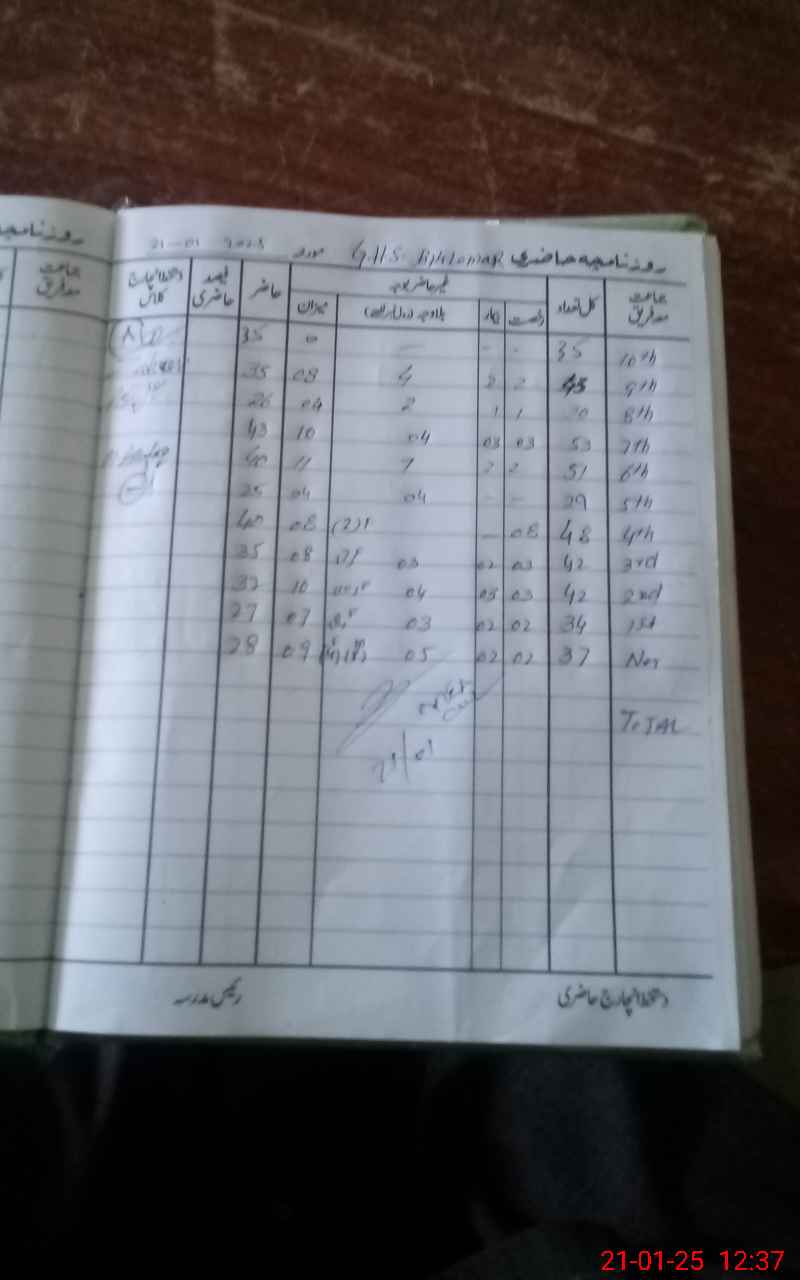 روزنامچہ حاضری G.H.S. مورخہ 21-01 2025
جماعت معہ فریق کل تعداد غیر حاضر بوجہ حاضر فیصد حاضری دستخط انچارج کلاس
رخصت بیمار بلاوجہ میزان
10th 35 - - - 0 35
9th 45 2 2 4 08 35
8th 1 1 2 04 26
7th 53 03 03 04 10 43
6th 51 2 2 7 11 40
5th 29 - - 04 04 25
4th 48 08 - 08 40
3rd 42 03 02 03 08 35
2nd 42 03 03 04 10 32
1st 34 02 02 03 07 27
Nur 37 02 02 05 09 28
TOTAL
21/01
دستخط انچارج حاضری رئیس مدرسہ
روزنامچہ
جماعت معہ فریق
21-01-25 12:37